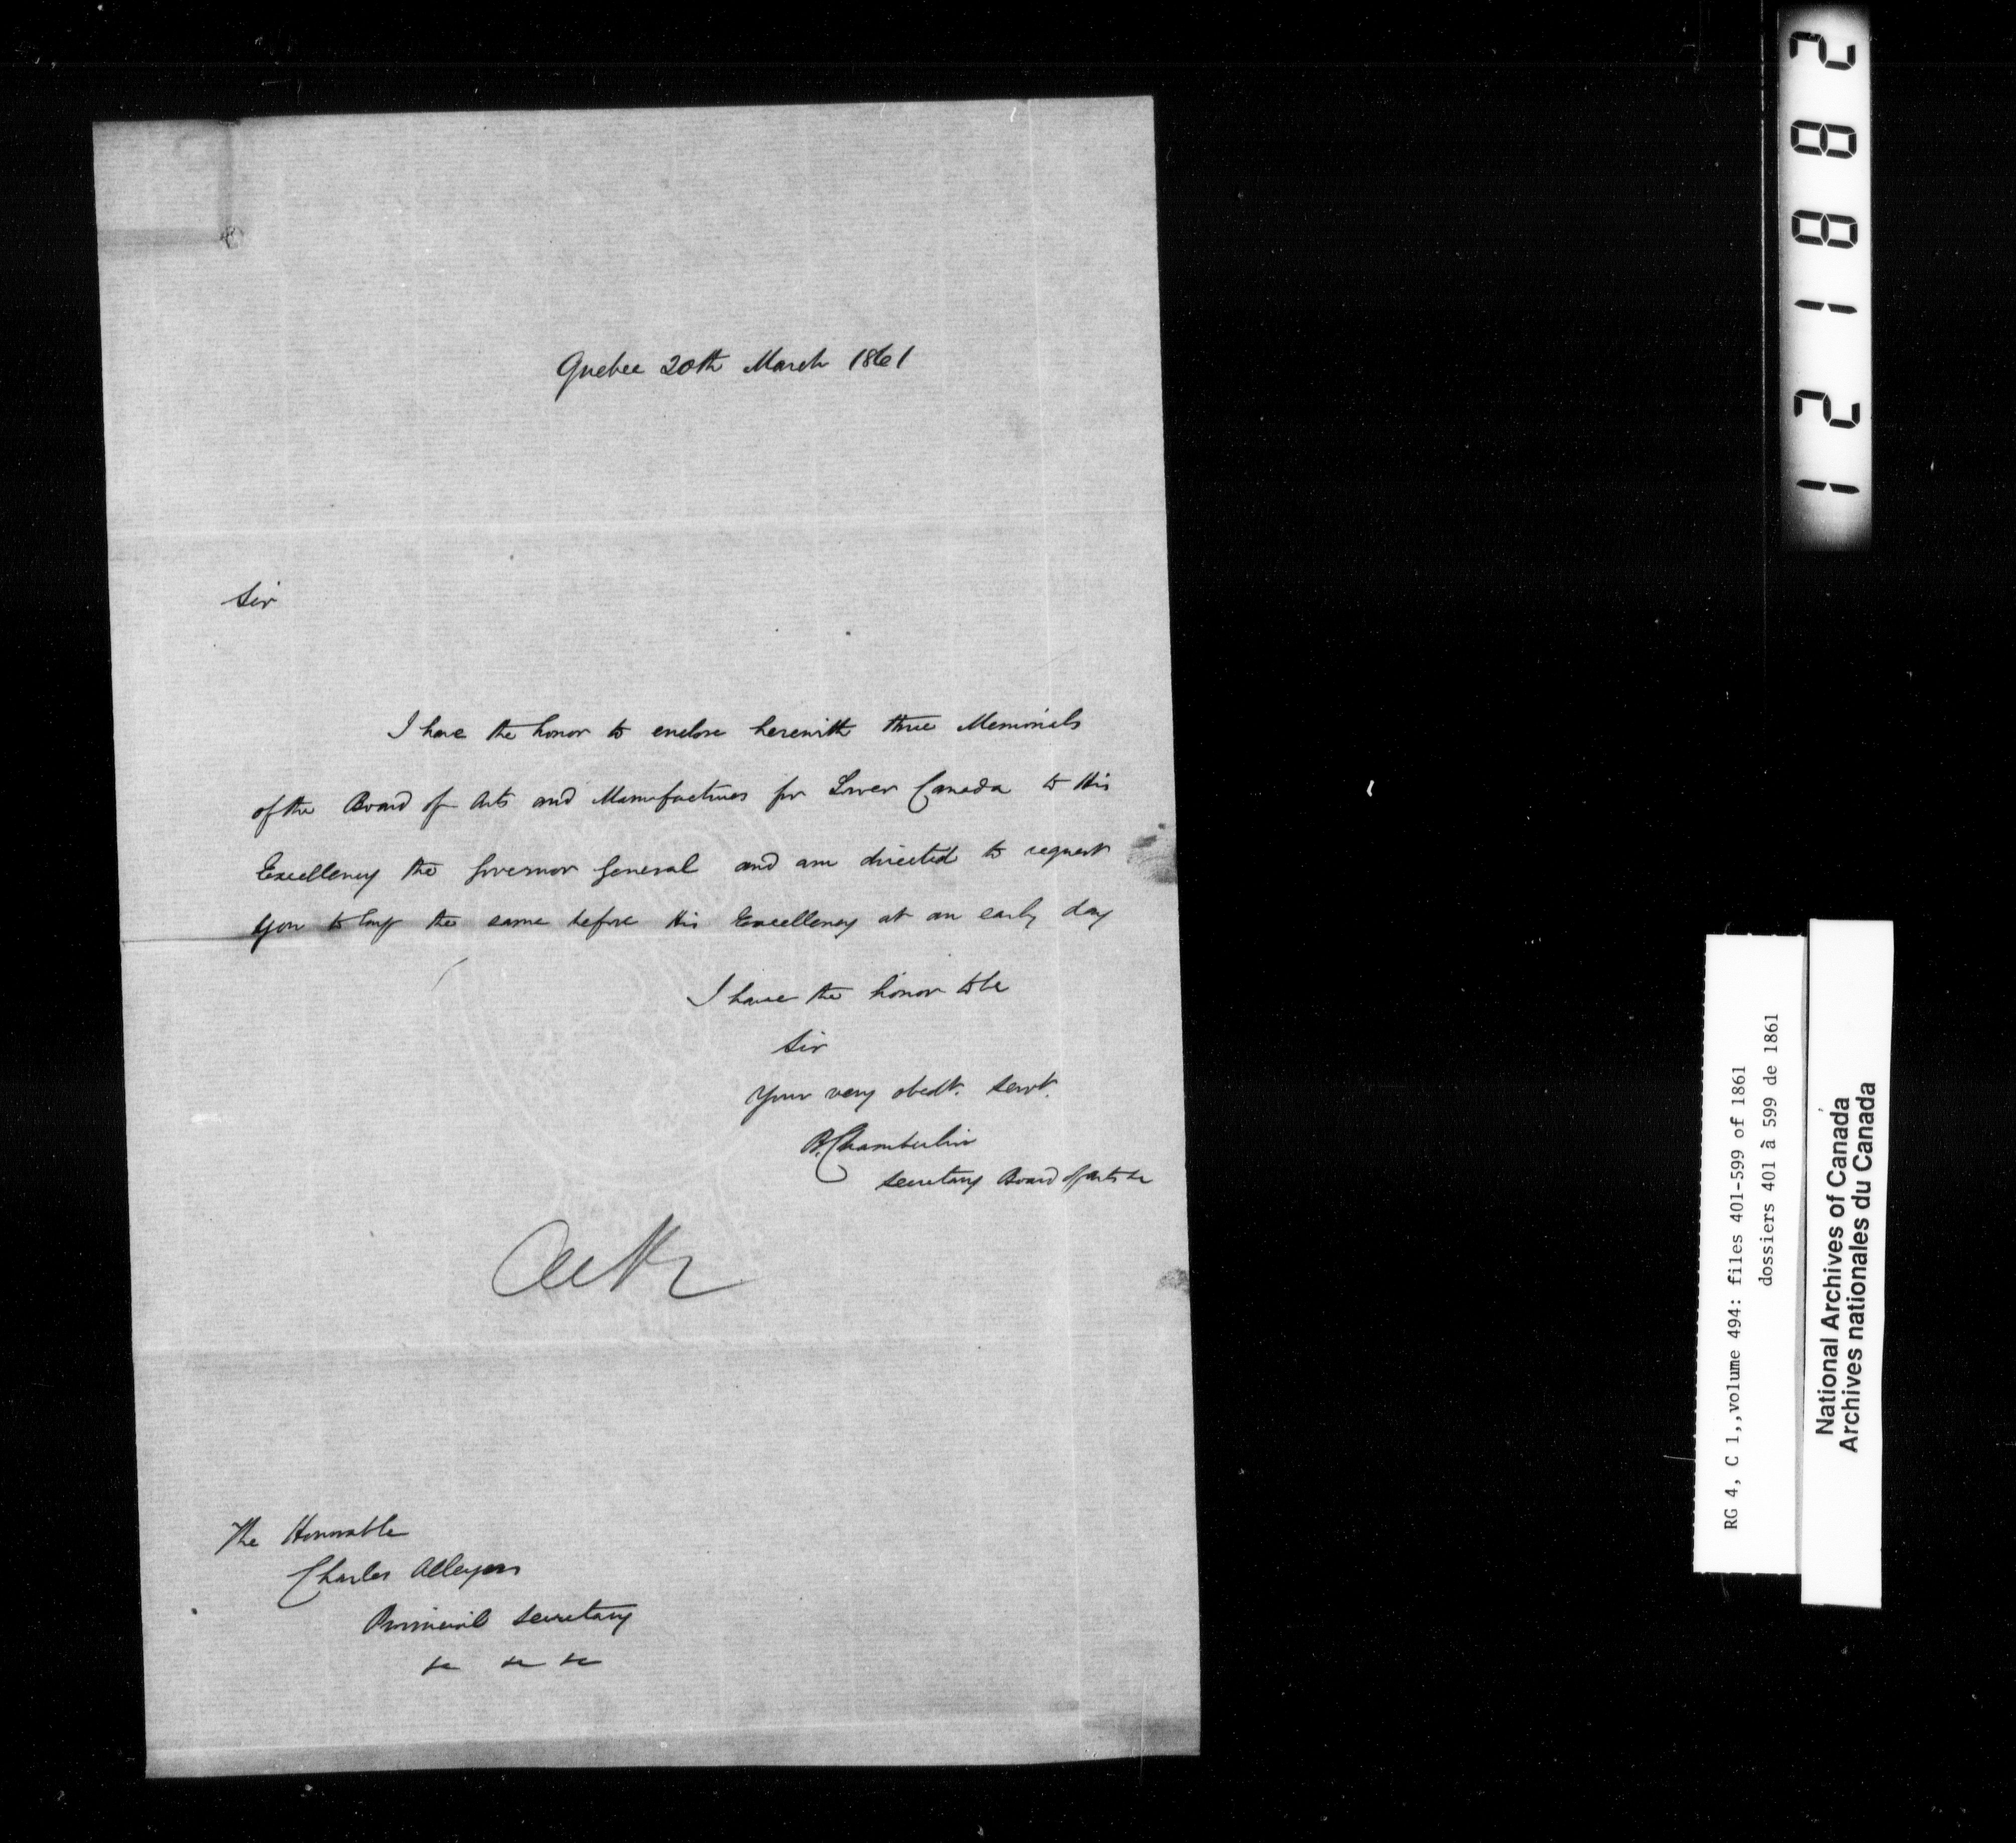 Quebec 20th March 1861
Sir
I have the honor to enclose herewith three Memorials
of the Board of Arts and Manufactures for Lower Canada to His
Excellency the Governor General and am directed to request
you to lay the same before His Excellency at an early day
I have the honor to be
Sir
Your very obedt. servt.
B. Chamberlin
Secretary Board of Arts &c
The Honorable
Charles Alleyn
Provincial Secretary
&c &c &c
121882
RG 4, C 1,,volume 494: files 401-599 of 1861
dossiers 401 à 599 de 1861
National Archives of Canada
Archives nationales du Canada